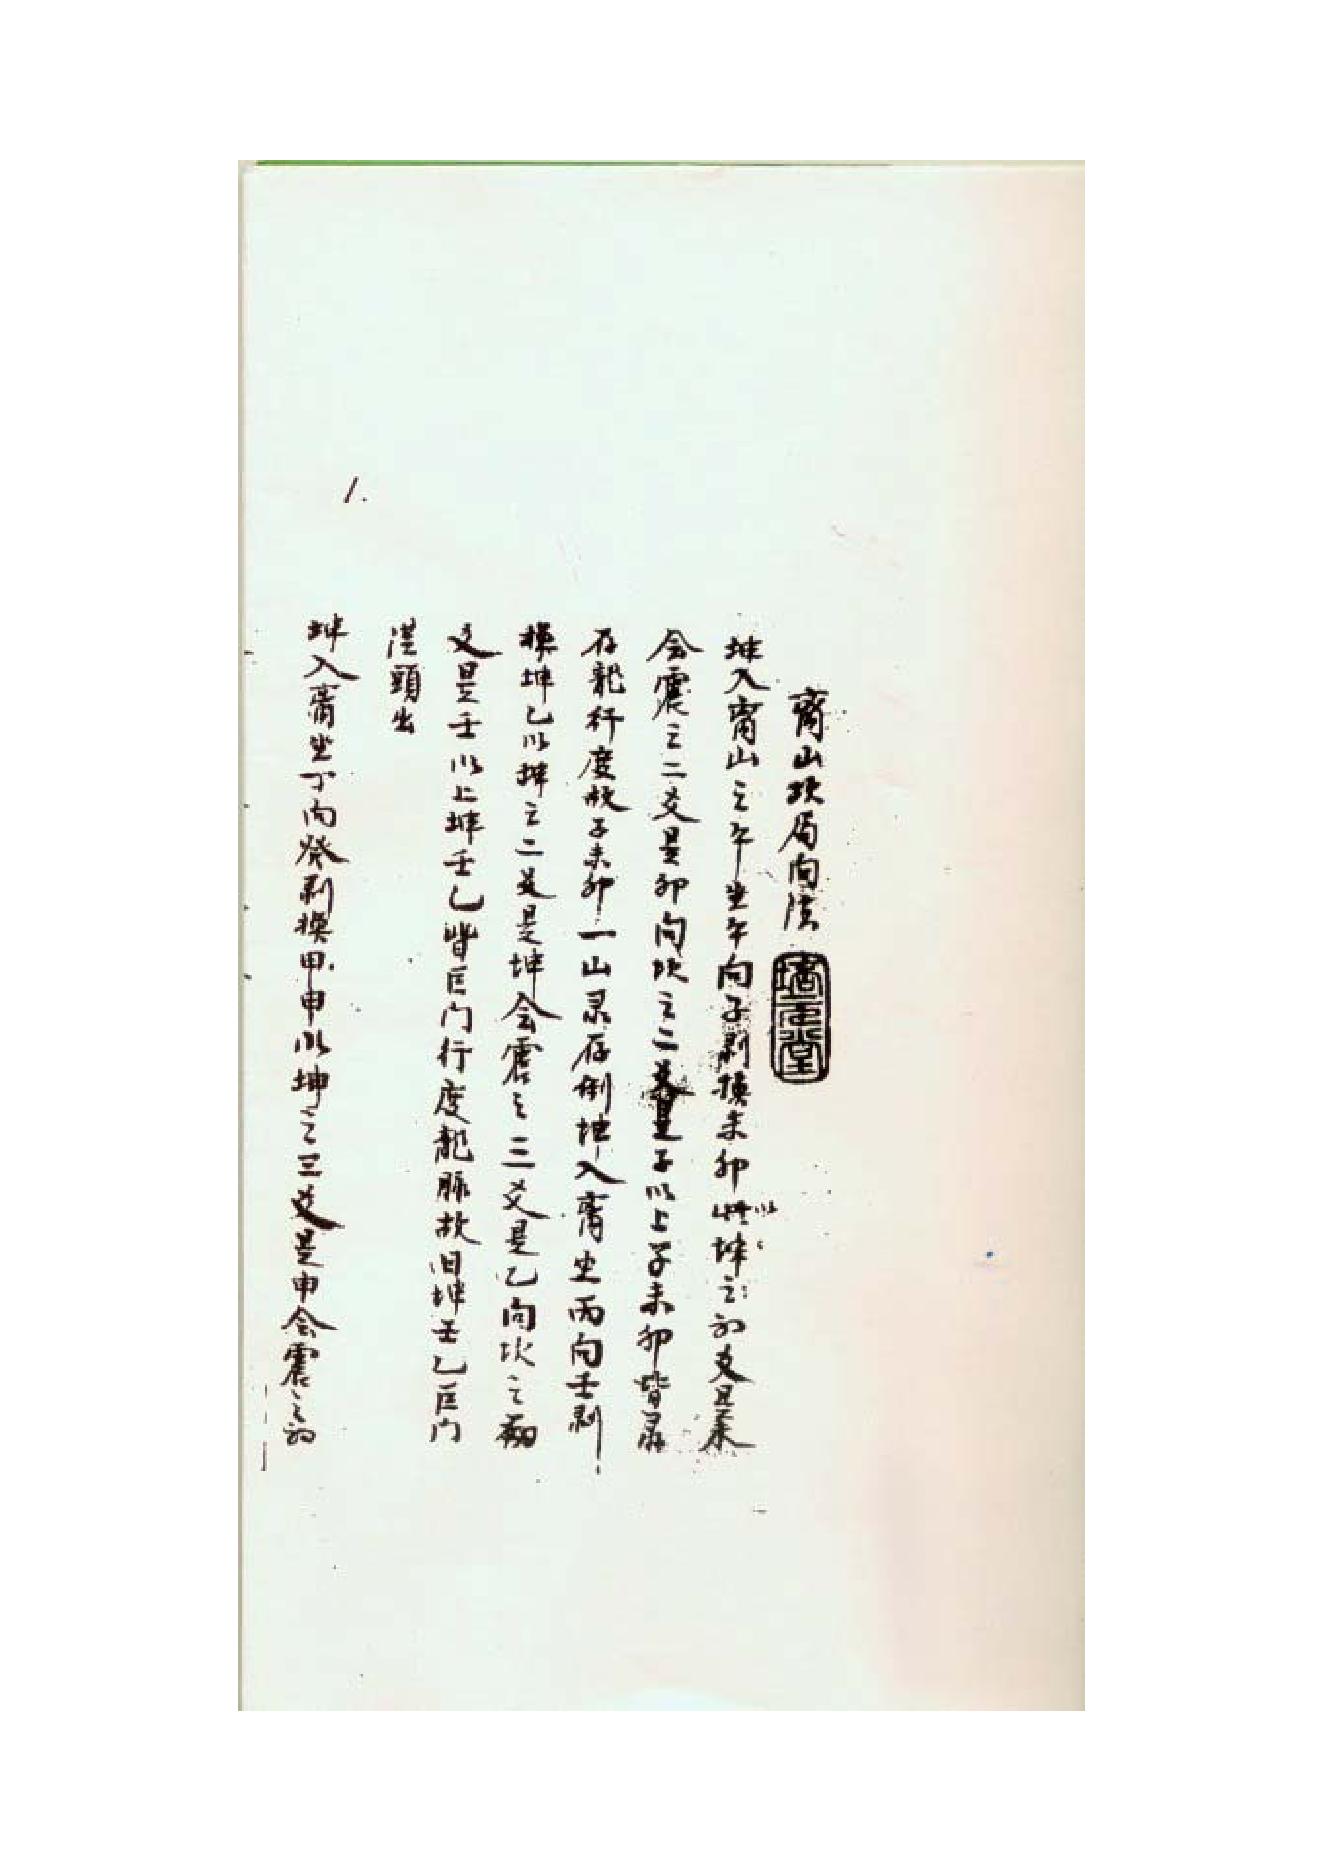 离山坎局向法
坤入离山之午坐午向子剥換未卯以坤之初爻是未
会震之二爻是卯向坎之二爻是子以上子未卯皆录
存龍行度故子未卯一山录存倒坤入离坐丙向壬剥
換坤乙以坤之二爻是坤会震之三爻是乙向坎之初
爻是壬以上坤壬乙皆巨门行度龍脉故曰坤壬乙巨门
従頭出
坤入离坐丁向癸剥換甲申以坤之三爻是申会震之初
1.